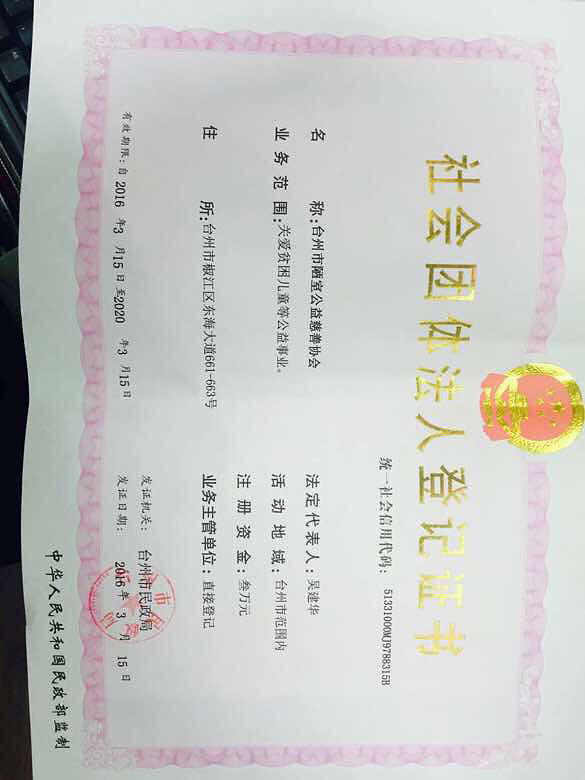 社会团体法人登记证书
统一社会信用代码: 51331000MJ9788315B
名称:台州市陋室公益慈善协会
业务范围:关爱贫困儿童等公益事业。
住所:台州市椒江区东海大道661-663号
法定代表人:吴建华
活动地域:台州市范围内
注册资金:叁万元
业务主管单位:直接登记
有效期限:自2016年3月15日至2020年3月15日
发证机关:台州市民政局
发证日期:2016年3月15日
中华人民共和国民政部监制